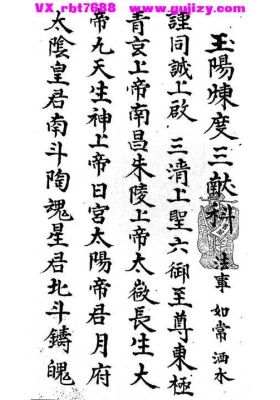 VX_rbt7688  www.gujizy.com
玉陽煉度三献科 法事 如常洒水
謹同誠上啟 三清上聖六御至尊東極
青京上帝南昌朱陵上帝太嶽長生大
帝九天生神上帝日宮太陽帝君月府
太陰皇君南斗陶魂星君北斗鑄魄